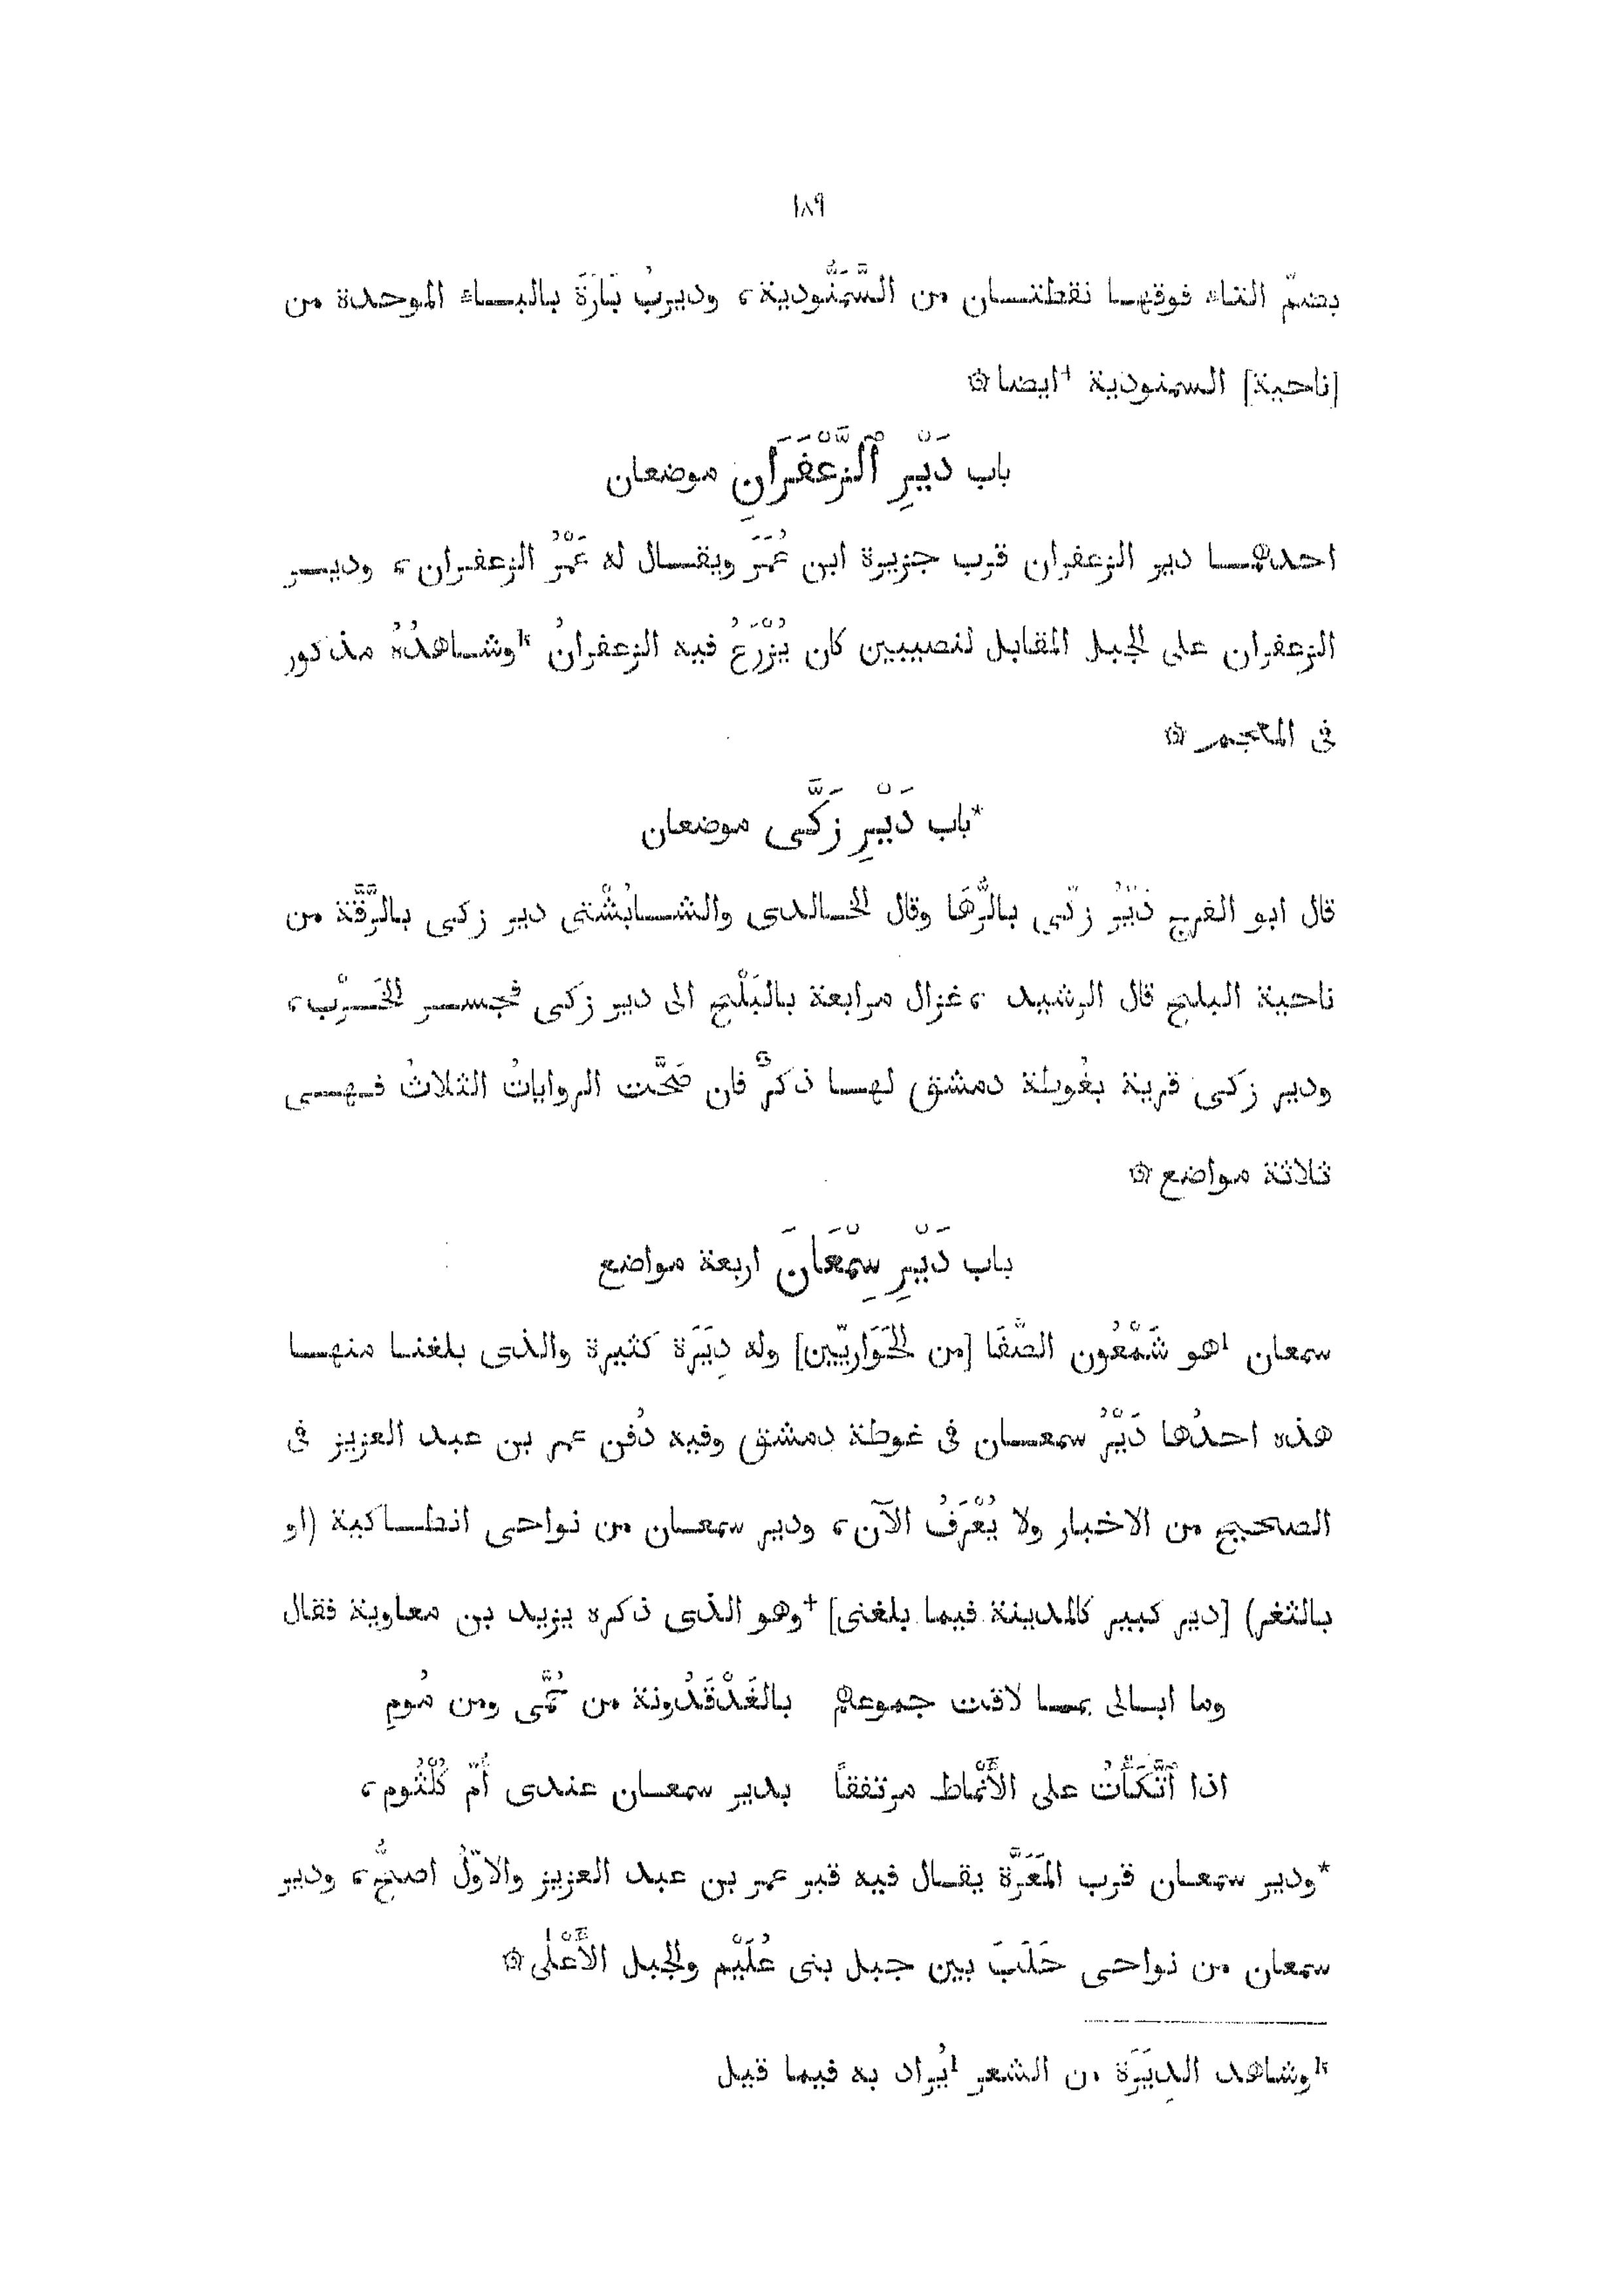 ١٨٩
بضمّ التاء فوقها نقطتان من السَّمَنُّودية، وديربُ بَارَةَ بالباء الموحدة من
[ناحية] السمنودية +ايضا ۞
باب دَيْرِ ٱلزَّعْفَرَانِ موضعان
احدهما دير الزعفران قرب جزيرة ابن عُمَرَ ويقال له عَمْرُ الزعفران، ودير
الزعفران على الجبل المقابل لنصيبين كان يُزْرَعُ فيه الزعفرانُ وشاهدُهُ مذكور
فى المعجم ۞
*باب دَيْرِ زَكَّى موضعان
قال ابو الفرج دَيْرُ زكّى بالرُّهَا وقال الخالدى والشابُشْتى دير زكى بالرَّقَّة من
ناحية البليخ قال الرشيد، غزال مرابعة بالبَلْخِ الى دير زكى فجسر الخَرْب،
ودير زكى قرية بغُوطة دمشق لها ذكرٌ فان صَحَّت الرواياتُ الثلاثُ فهى
ثلاثة مواضع ۞
باب دَيْرِ سِمْعَانَ اربعة مواضع
سمعان ¹هو شَمْعُون الصَّفَا [من الحَوَاريّين] وله دِيَرَة كثيرة والذى بلغنا منها
هذه احدُها دَيْرُ سمعان فى غوطة دمشق وفيه دُفن عمر بن عبد العزيز فى
الصحيح من الاخبار ولا يُعْرَفُ الآن، ودير سمعان من نواحى انطاكية (او
بالثغر) [دير كبير كالمدينة فيما بلغنى] +وهو الذى ذكره يزيد بن معاوية فقال
وما ابالى بما لاقت جموعهم بالغَذْقَذُونة من حُمَّى ومن مُومِ
اذا ٱتَّكَأْتُ على الأَنْماط مرتفقاً بدير سمعان عندى أُمّ كُلْثُوم،
*ودير سمعان قرب المَعَرَّة يقال فيه قبر عمر بن عبد العزيز والاوّلُ اصحُّ، ودير
سمعان من نواحى حَلَبَ بين جبل بنى عُلَيْم والجبل الأَعْلى ۞
وشاهد الدِيَرَة من الشعر ¹يُراد به فيما قيل